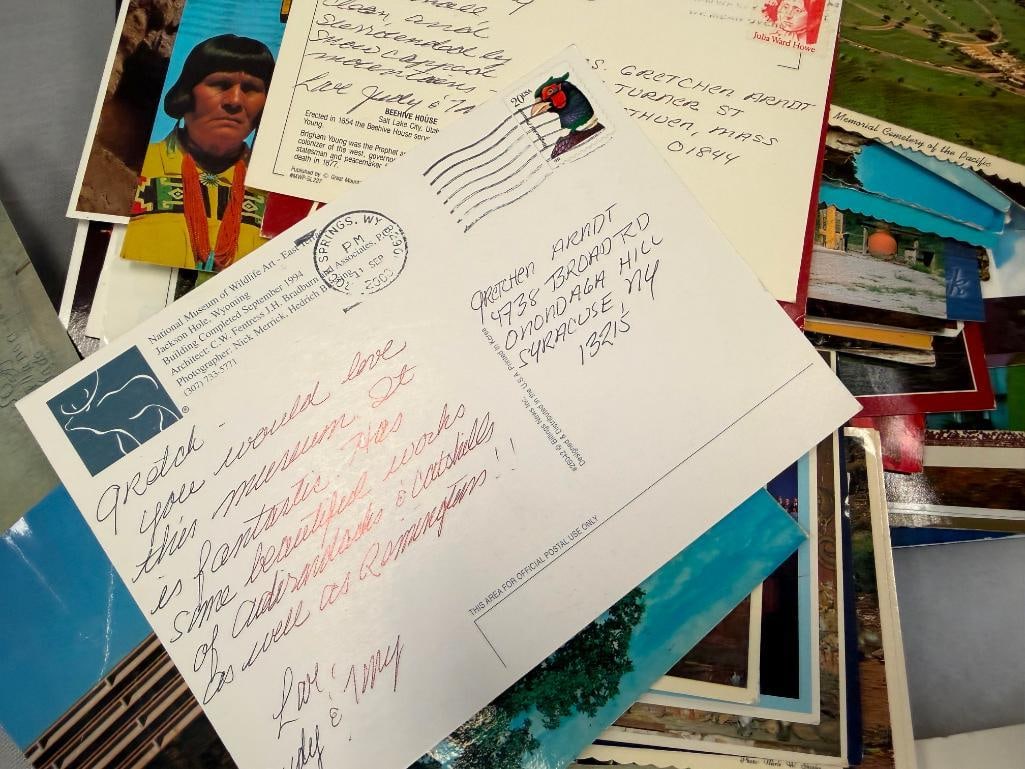 Clean and
Surrounded by
Snow Capped
mountains -
Love Judy &
BEEHIVE HOUSE
Salt Lake City, Utah
Erected in 1854 the Beehive House
Young.
Brigham Young was the Prophet
colonizer of the west,
statesman and peacemaker
death in 1877.
Published by © Great
Julia Ward Howe
S. GRETCHEN ARNDT
TURNER ST
THUEN, MASS
01844
Memorial Cemetery of the Pacific
20 USA
SPRINGS, WY
PM
11 SEP
2000
National Museum of Wildlife Art - East
Jackson Hole, Wyoming
Building Completed September 1994
Architect: C.W. Fentress J.H. Bradburn and Associates, P.C.
Photographer: Nick Merrick, Hedrich
(307) 733-5771
®
Gretch -
you would love
this museum. It
is fantastic. Has
some beautiful works
of Adirondacks & Catskills
as well as Remingtons!!
Love
Judy & Tmy
GRETCHEN ARNDT
4738 BROAD RD
ONONDAGA HILL
SYRACUSE NY
13215
Designed & Distributed in the U.S.A. Printed in Korea
#28042 © Billings News Inc.
THIS AREA FOR OFFICIAL POSTAL USE ONLY